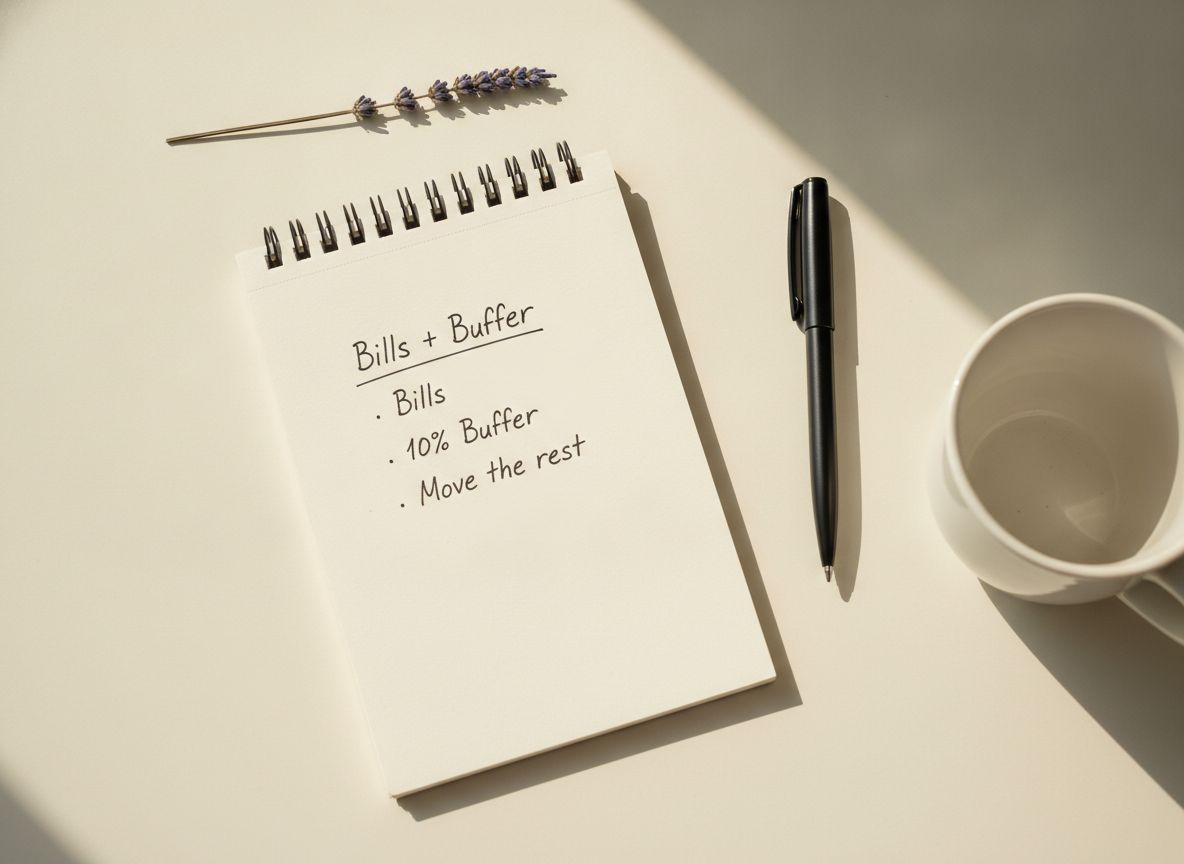 Bills + Buffer
. Bills
. 10% Buffer
. Move the rest